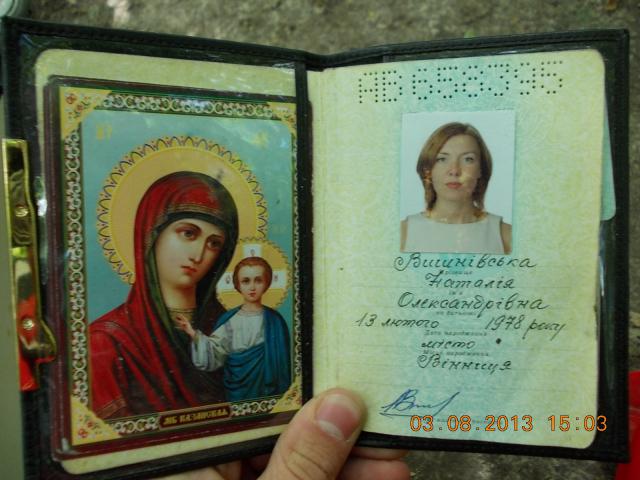 МБ КАЗАНСКАѦ
АВ 658395
Вишнівська
Прізвище
Наталія
Ім'я
Олександрівна
По батькові
13 лютого 1978 року
Дата народження
місто
Місце народження
Вінниця
03.08.2013 15:03